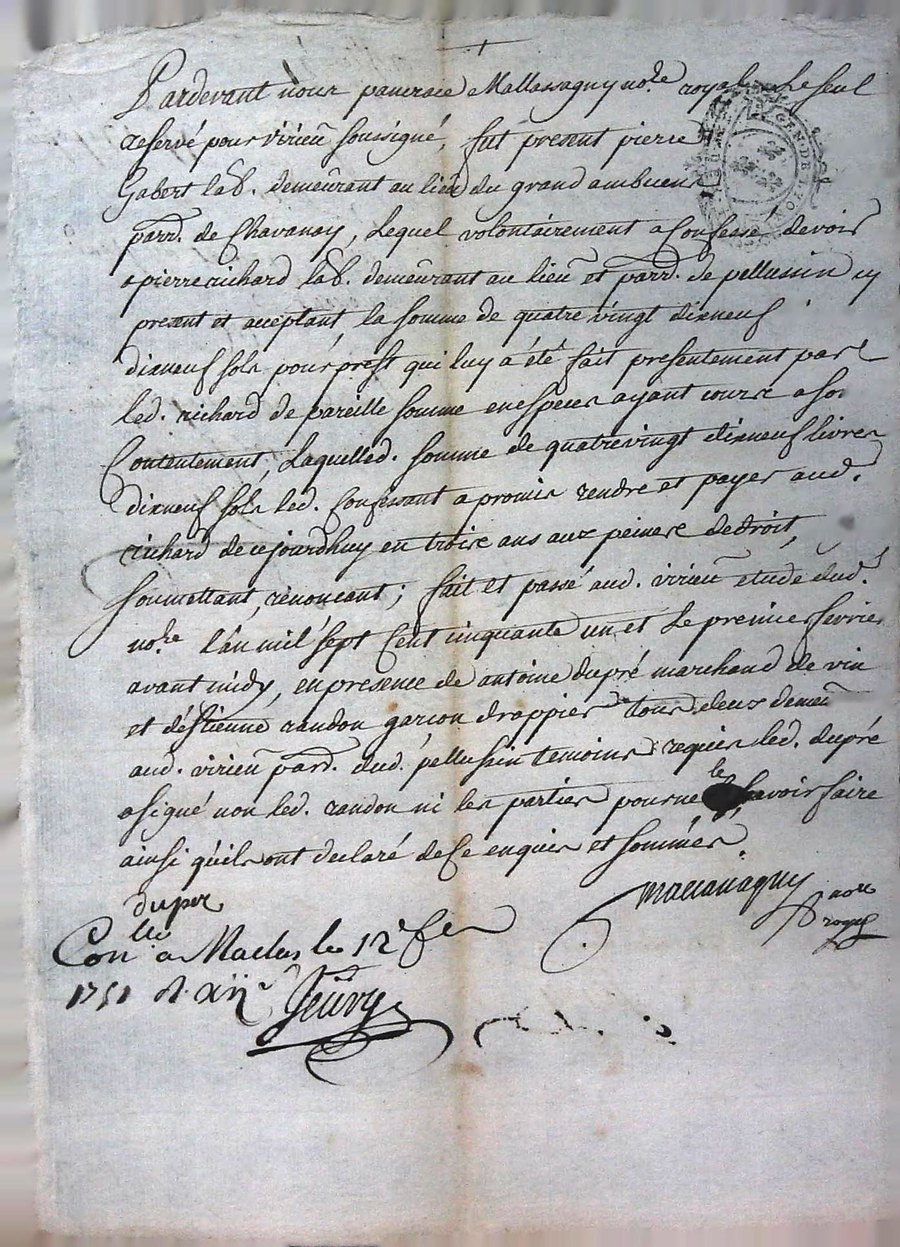 Pardevant nous pancrace Mallassagny no.re royal le seul
reservé pour virieu soussigné, fut present pierre
Gabert lab. demeurant au lieu du grand ambuent
parr. de Chavanay, Lequel volontairement a Confessé devoir
a pierre richard lab. demeurant au lieu et parr. de pellussin cy
present et acceptant la somme de quatre vingt dixneuf
dixneuf sols pour prest qui luy a été fait presentement par
led. richard de pareille somme en especes ayant cours a son
Contentement, Laquelled. somme de quatrevingt dixneuf livres
dixneuf sols led. Confessant a promis rendre et payer aud.
richard de cejourdhuy en trois ans aux peines de droit,
soumettant, renoncant; fait et passé aud. virieu etude dud.
no.re L'an mil sept Cent cinquante un et Le premier fevrier
avant midy, en presence de antoine dupré marchand de vin
et d'estienne randon garçon drappier tous deux demeu
aud. virieu parr. dud. pellussin temoins requis led. dupré
a signé non led. randon ni les parties pour ne le scavoir faire
ainsi qu'ils ont declaré de ce enquis et sommés.
dupre
Mallassagny no.re royal
Con.lé a Maclas le 12e fe
1751 R. xii s.
Jeuvy
GEN. DE LYON